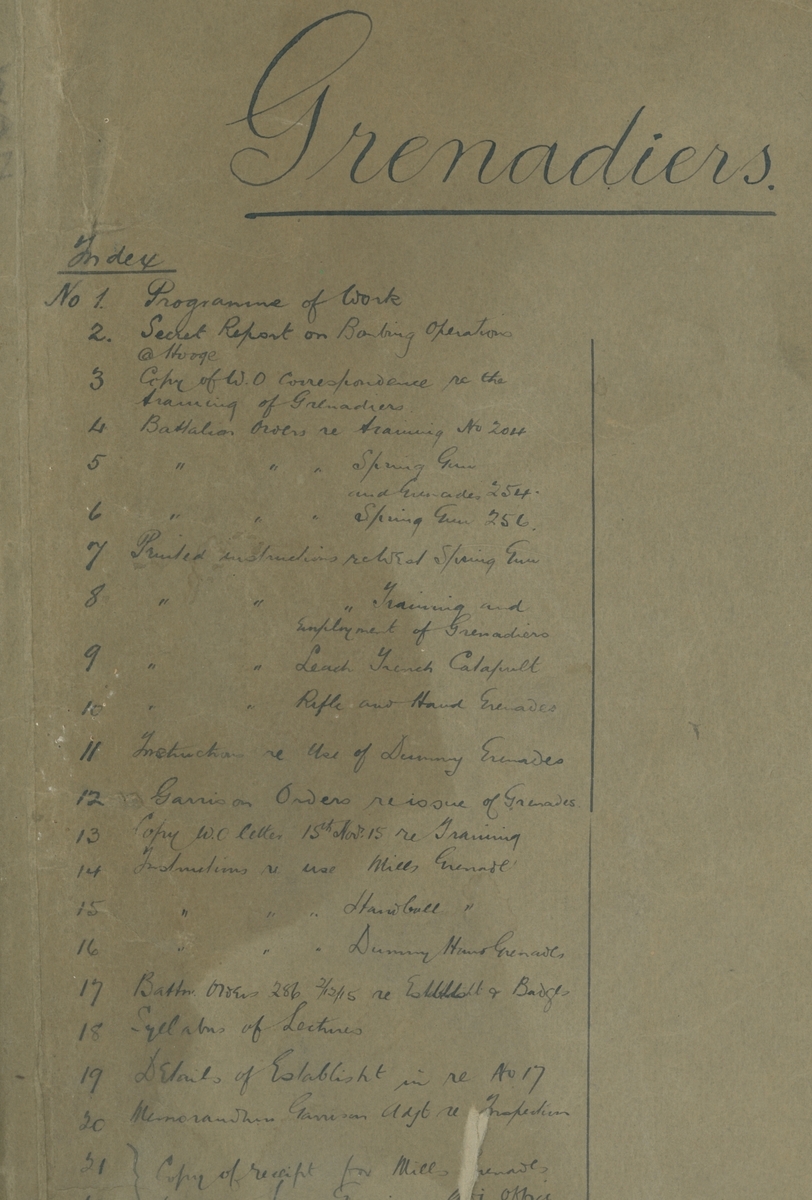 Grenadiers.
Index
No 1. Programme of Work
2. Secret Report on Bombing Operations
@ Hooge
3 Copy of W.O correspondence re the
training of Grenadiers
4 Battalion Orders re training No 204
5 " " " Spring Gun
and Grenades 254.
6 " " " Spring Gun 256.
7 Printed instructions re West Spring Gun
8 " " " Training and
Employment of Grenadiers
9 " " Leach Trench Catapult
10 " " Rifle and Hand Grenades
11 Instructions re Use of Dummy Grenades
12 Garrison Orders re issue of Grenades
13 Copy W.O letter 15th Nov. 15 re Training
14 Instructions re use Mills Grenade
15 " " " Handball "
16 " " " Dummy Hand Grenades
17 Battn. Orders 286 2/12/15 re & Badges
18 Syllabus of Lectures
19 Details of Establisht in re No 17
20 Memorandum Garrison Adjt re Inspection
21 } Copy of receipt for Mills Grenades
Office